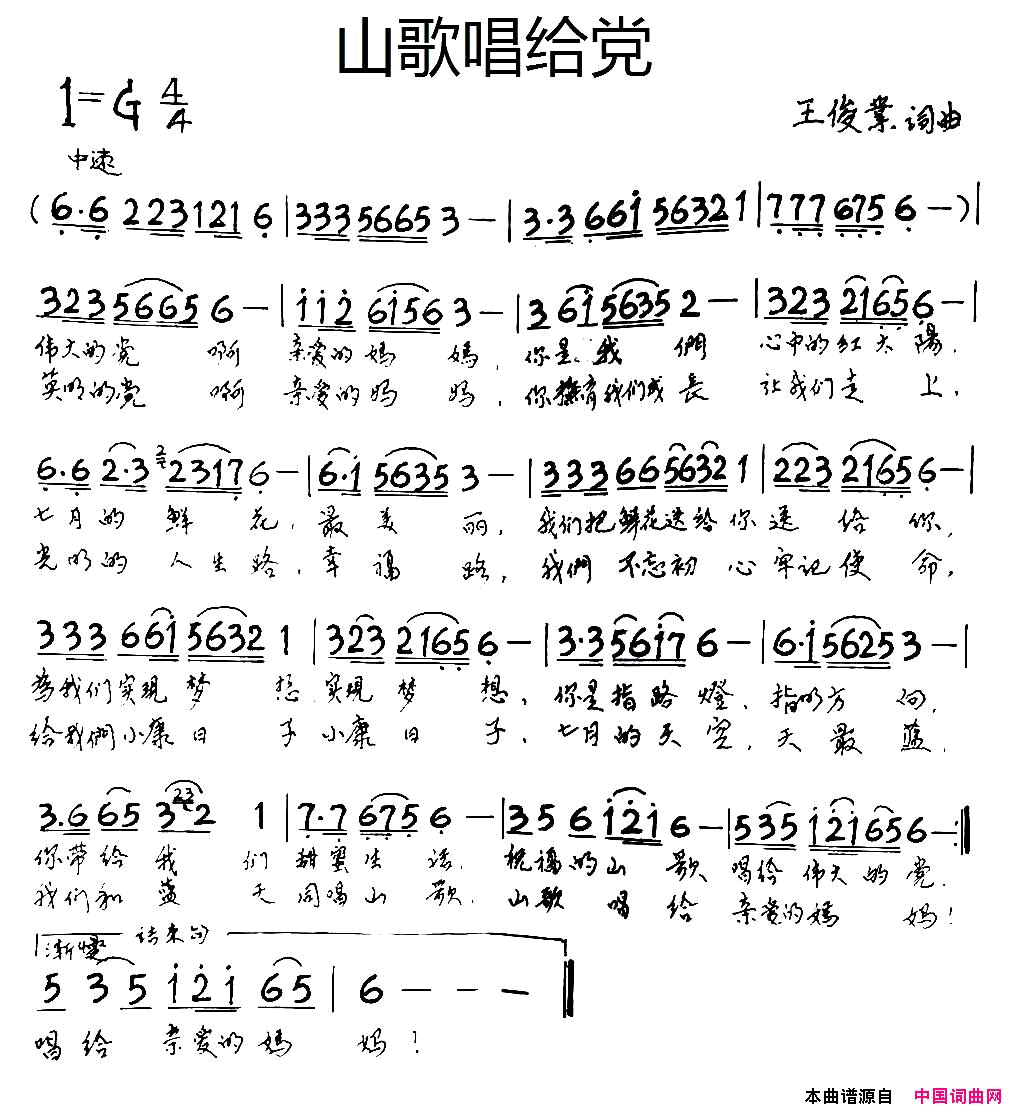 山歌唱给党
1=G 4/4
王俊業 词曲
中速
(6·6 223121 6 | 33356653 – | 3·3 661 56321 | 777 675 6 – ) |
323 5665 6 – | 112 6156 3 – | 3 61 5635 2 – | 323 2165 6 – |
伟大的党 啊 亲爱的妈 妈，你是 我 們 心中的红太 陽，
英明的党 啊 亲爱的妈 妈，你撫育我们成 長 让我们走 上，
6·6 2·3 2 2317 6 – | 6·1 5635 3 – | 333 66 5632 1 | 223 2165 6 – |
七月 的 鮮 花，最 美 丽，我们把鲜花送给你 送 给 你，
光明的 人生路，幸 福 路，我們 不忘初 心 牢记使 命，
333 661 5632 1 | 323 2165 6 – | 3·3 5617 6 – | 6·1 5625 3 – |
為我们实现 梦 想 实现 梦 想，你是指路 燈，指明方 向，
给我們小康日 子 小康日 子，七月的天空，天 最 蓝，
3·6 65 3 23 2 1 | 7·7 675 6 – | 35 6 121 6 – | 535 121 65 6 – :‖
你带给 我 们 甜蜜生 活，祝福的山 歌 唱给 伟大的党，
我们和 蓝 天 同唱山 歌，山歌 唱 给 亲爱的媽 妈！
渐慢 结束句
5 3 5 1 2 1 65 | 6 – – – ‖
唱给 亲爱的媽 妈！
本曲谱源自 中国词曲网